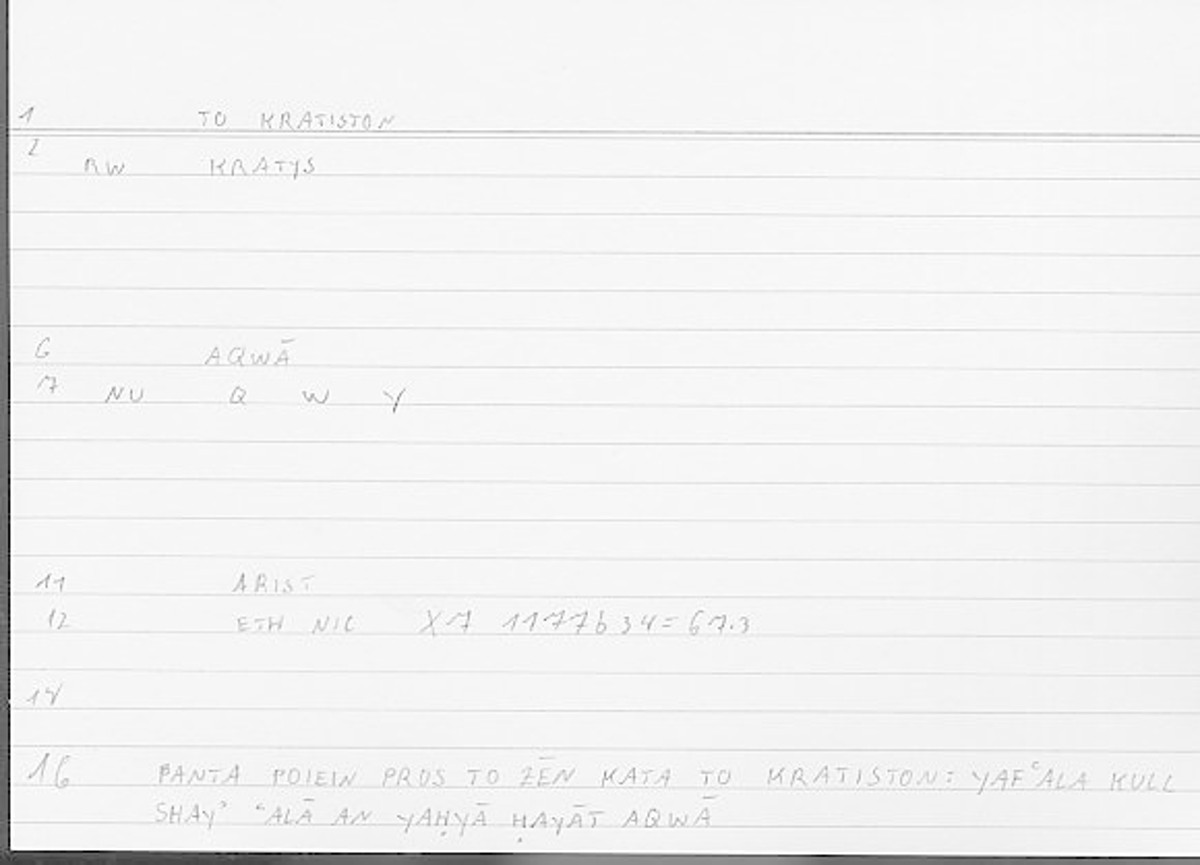 1 TO KRATISTON
2
RW KRATYS
6 AQWĀ
7 NU Q W Y
11 ARIST
12 ETH NIC X7 1177b34=67.3
14
16 PANTA POIEIN PROS TO ZĒN KATA TO KRATISTON: YAFʿALA KULL
SHAYʾ ʿALĀ AN YAḤYĀ ḤAYĀT AQWĀ